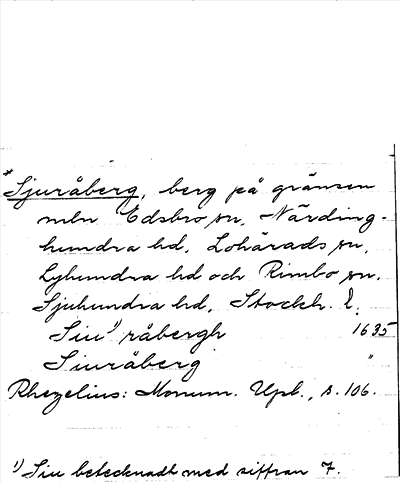 * Sjuråberg, berg på gränsen
mln Edsbro sn, Närding-
hundra hd, Lohärads sn,
Lyhundra hd och Rimbo sn,
Sjuhundra hd, Stockh. l.
Siu¹⁾ råbergh 1635
Siuråberg "
Rhezelius: Monum. Upl., s. 106.
¹⁾ Siu betecknadt med siffran 7.